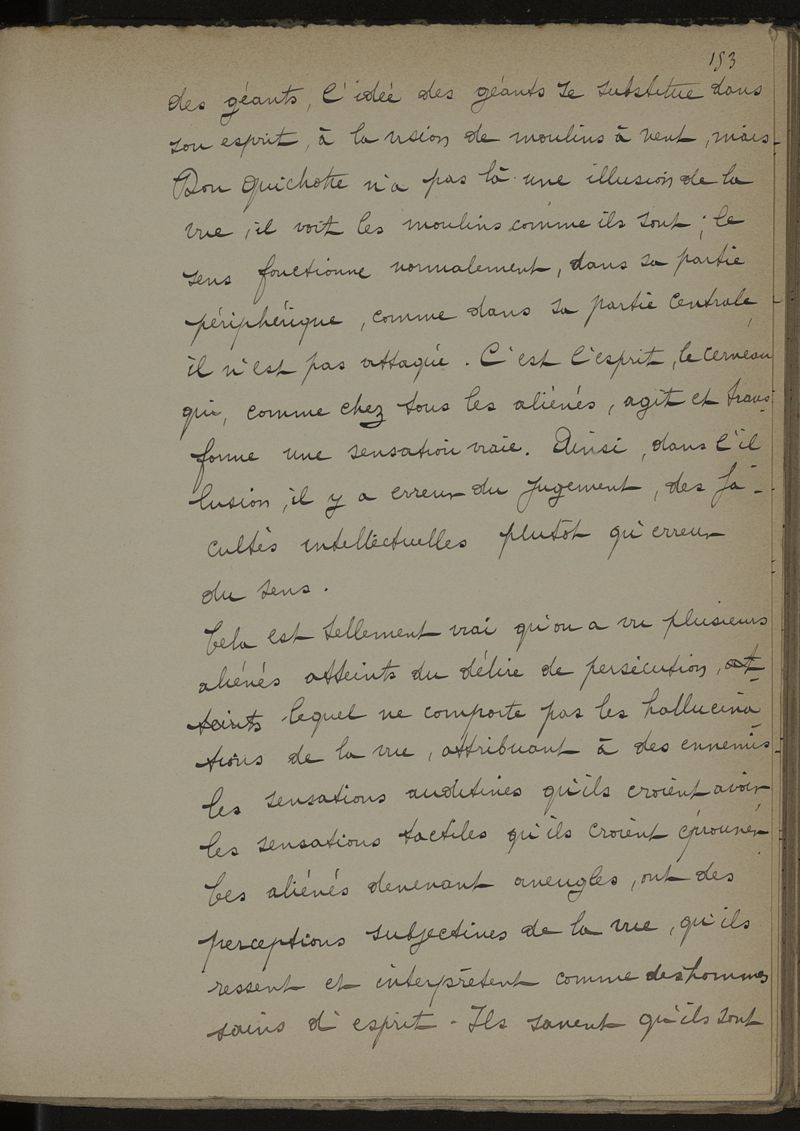 153
des géants, l'idée des géants se substitue dans
son esprit, à la vision de moulins à vent, mais
Don Quichotte n'a pas là une illusion de la
vue, il voit les moulins comme ils sont ; le
sens fonctionne normalement, dans sa partie
périphérique, comme dans sa partie centrale,
il n'est pas attaqué. C'est l'esprit, le cerveau
qui, comme chez tous les aliénés, agit et trans-
forme une sensation vraie. Ainsi, dans l'il
lusion, il y a erreur du jugement, des fa-
cultés intellectuelles plutôt qu'erreur
du sens.
Cela est tellement vrai qu'on a vu plusieurs
aliénés atteints du délire de persécution, at-
teints lequel ne comporte pas les hallucina-
tions de la vue, attribuant à des ennemis
les sensations auditives qu'ils croient avoir
les sensations tactiles qu'ils croient éprouver.
Ces aliénés devenant aveugles, ont des
perceptions subjectives de la vue, qu'ils
ressent et interprètent comme des hommes
sains d'esprit. Ils savent qu'ils sont